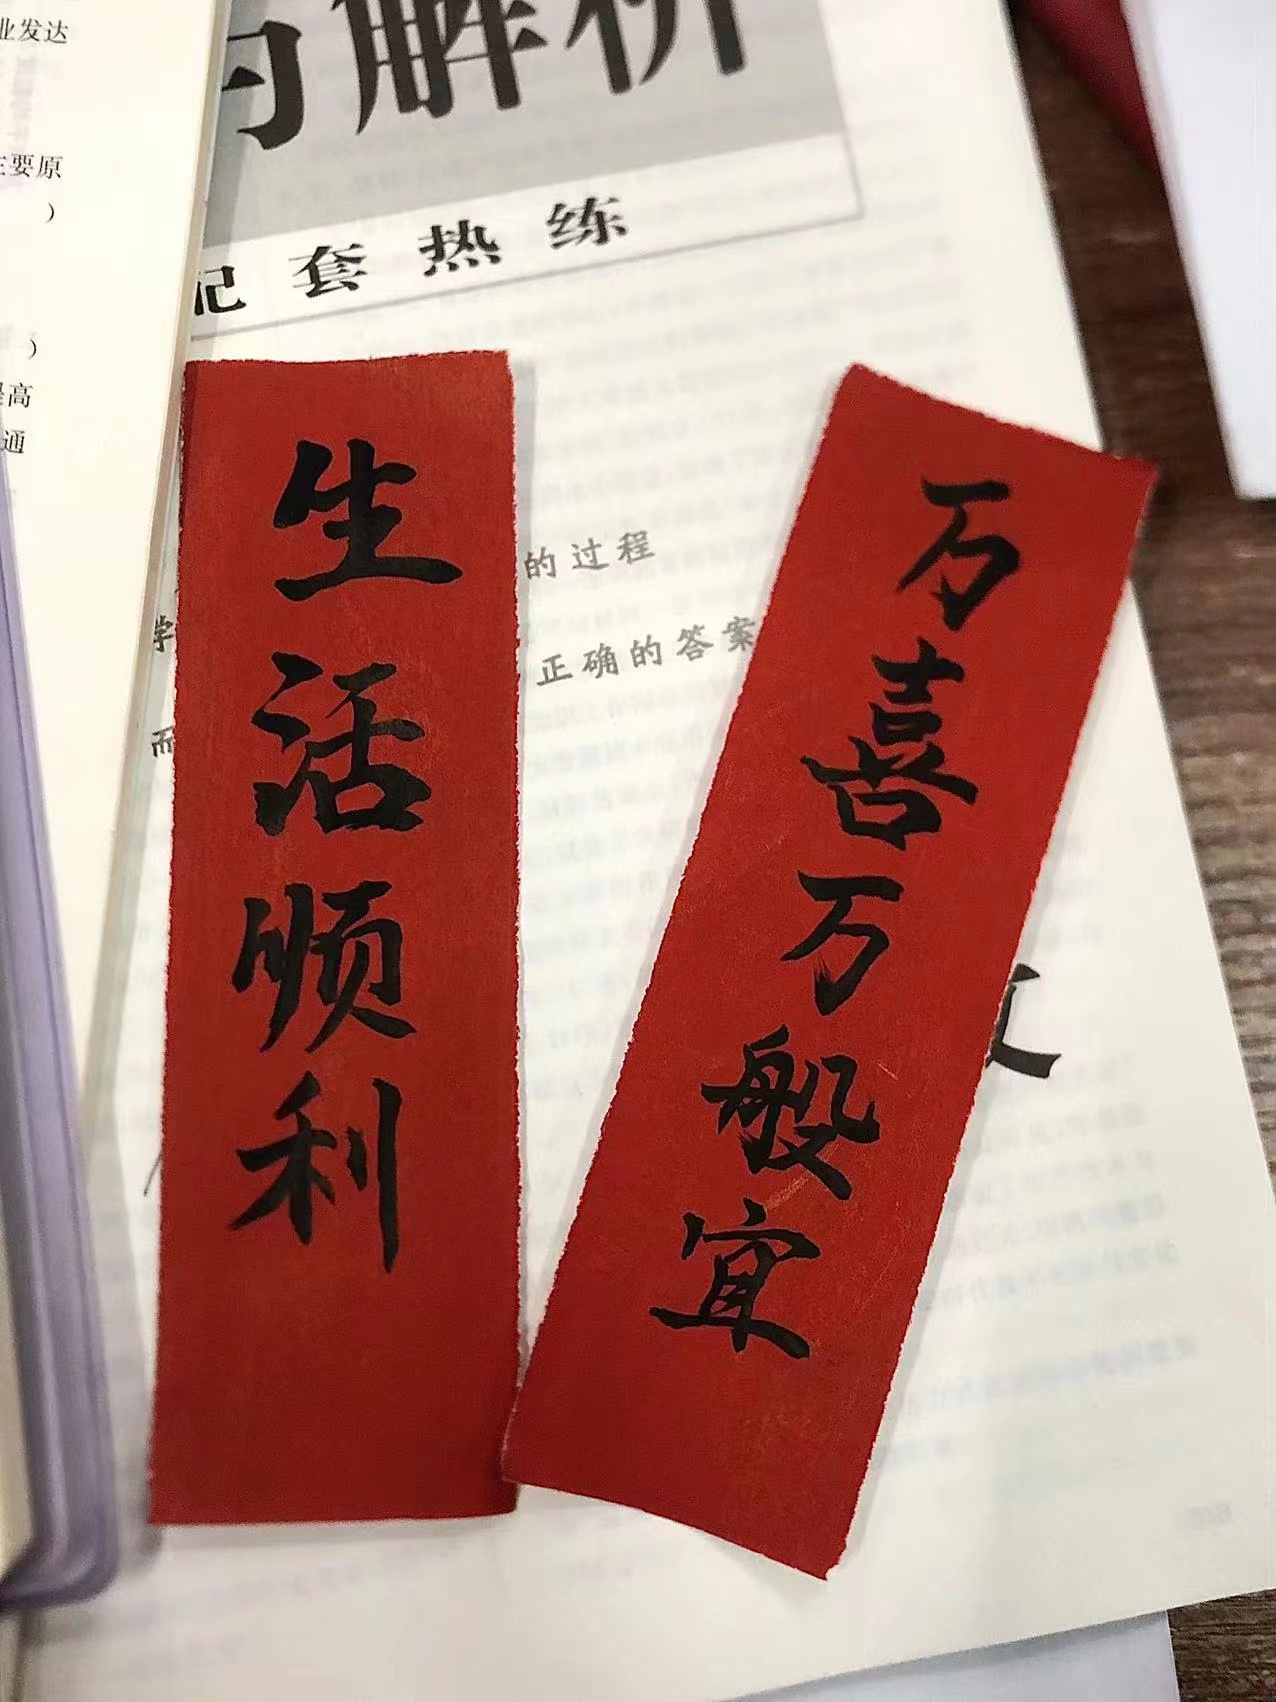 业发达
主要原
）
）
提高
通
解析
配套热练
的过程
正确的答案
而
生活顺利
万喜万般宜